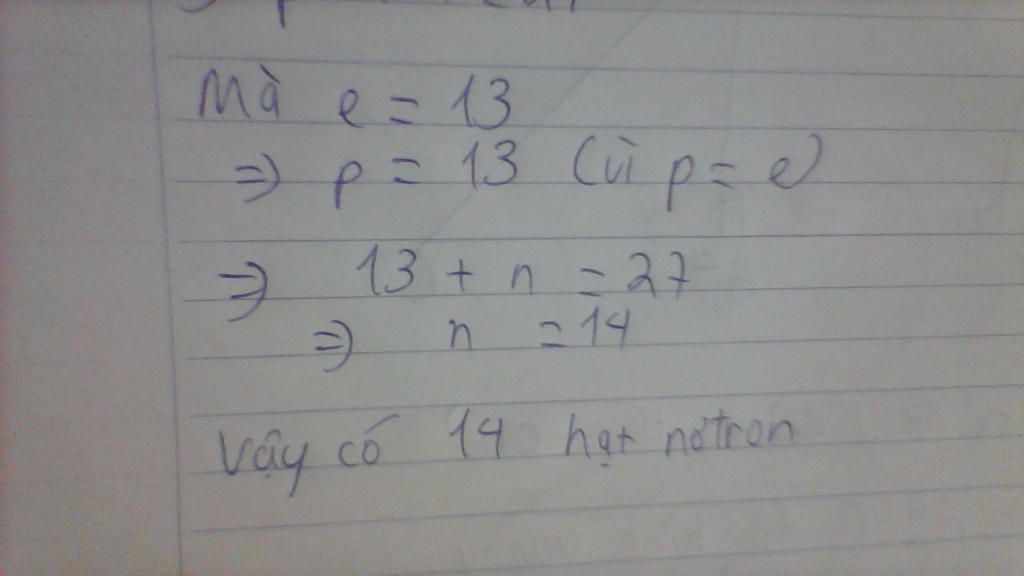 Mà e = 13
=> p = 13 (vì p = e)
=> 13 + n = 27
=> n = 14
Vậy có 14 hạt nơtron